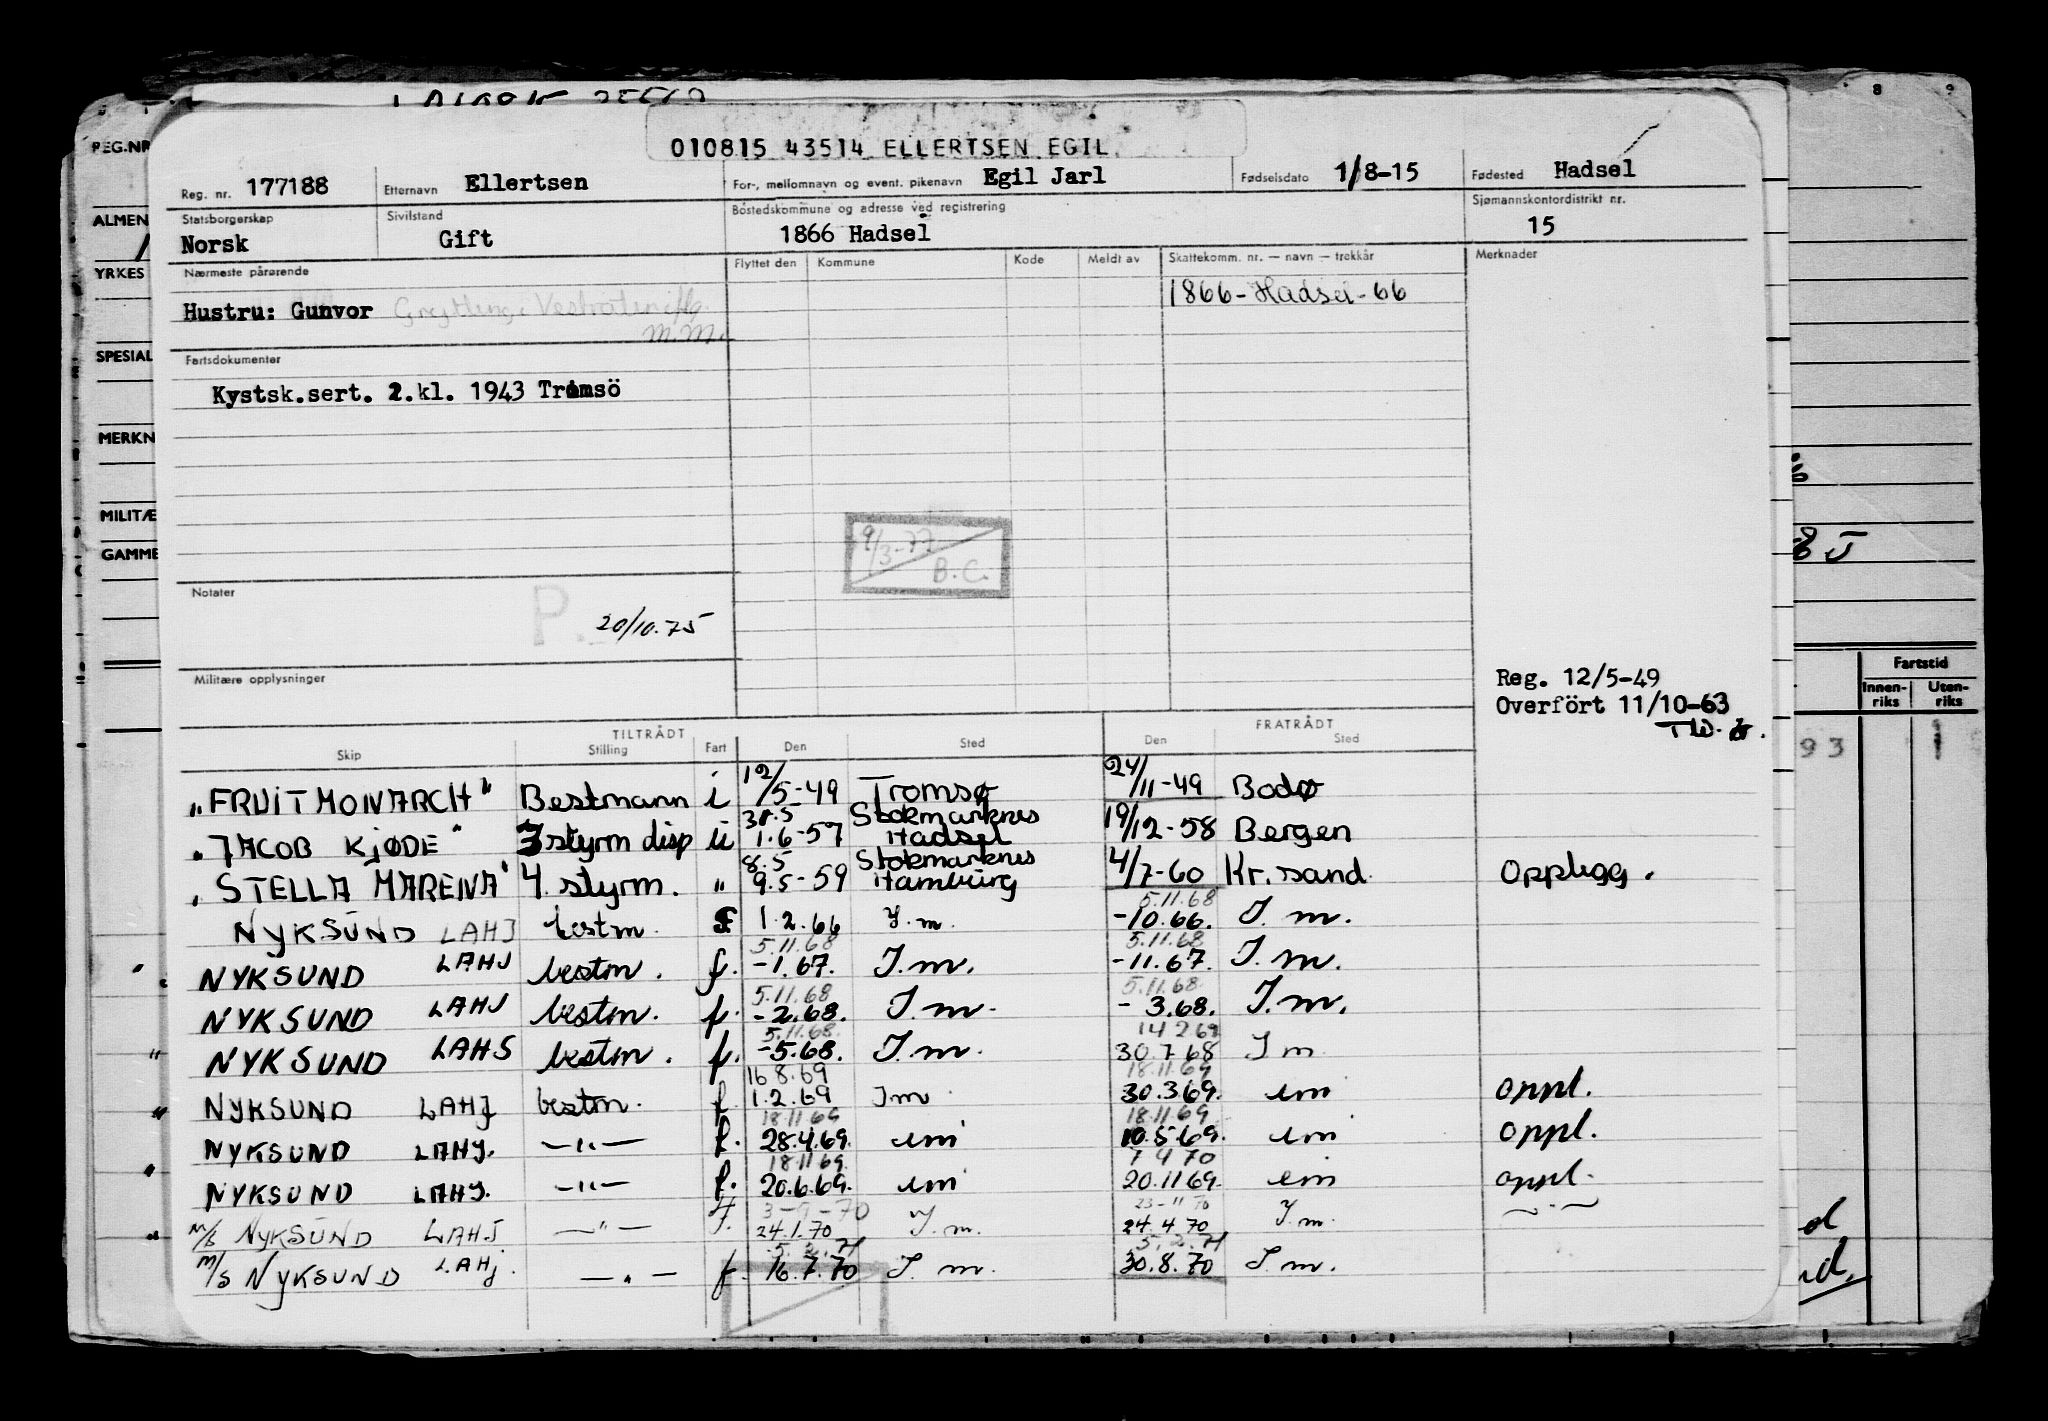 010815 43514 ELLERTSEN EGIL
Reg. nr. 177188 Etternavn Ellertsen For-, mellomnavn og event. pikenavn Egil Jarl Fødselsdato 1/8-15 Fødested Hadsel
Statsborgerskap Norsk Sivilstand Gift Bostedskommune og adresse ved registrering 1866 Hadsel Sjømannskontordistrikt nr. 15
Nærmeste pårørende Flyttet den Kommune Kode Meldt av Skattekomm. nr. — navn — trekkår Merknader
Hustru: Gunvor 1866 - Hadsel - 66
m.m.
Fartsdokumenter
Kystsk.sert. 2.kl. 1943 Tromsö
9/3-77 B.C.
Notater
P. 20/10.75
Militære opplysninger
Reg. 12/5-49
Overfört 11/10-63
TILTRÅDT FRATRÅDT
Skip Stilling Fart Den Sted Den Sted
"FRUITMONARCH" Bestmann i 12/5-49 Tromsø 24/11-49 Bodø
"JACOB KJØDE" 3 styrm disp u 31.5 1.6-57 Stokmarknes Hadsel 19/12-58 Bergen
"STELLA MARENA" 4. styrm. " 8.5 9.5-59 Stokmarknes Hamburg 4/7-60 Kr.sand Opplegg.
NYKSUND LAHJ bestm. F 1.2.66 I.m. 5.11.68 -10.66. I.m.
NYKSUND LAHJ bestm. f. 5.11.68 -1.67. I.m. 5.11.68 -11.67. I.m.
NYKSUND LAHJ bestm. f. 5.11.68 -2.68. I.m. 5.11.68 -3.68. I.m.
NYKSUND LAHS bestm. f. 5.11.68 -5.68. I.m. 14 2 69 30.7 68 I m
NYKSUND LAHJ bestm. f. 16 8.69 1.2.69 Im 18.11.69 30.3.69. im oppl.
NYKSUND LAHJ. —"— f. 18.11 69 28.4.69. im 18.11.69 10.5.69. im oppl.
NYKSUND LAHJ. —"— f. 18.11 69. 20.6.69. im 7 4 70 20.11 69. im oppl.
M/S NYKSUND LAHJ —"— F. 24.1.70 I.m. 23-11 70 24.4.70 I.m. —"—
M/S NYKSUND LAHJ. —"— f. 5.2.71 16.7.70 I.m. 5.2.71 30.8.70 I.m.
REG.NR
ALMEN
YRKES
SPESIAL
MERKN
MILITÆ
GAMME
8 9
Fartstid
Innen-riks Uten-riks
93 1